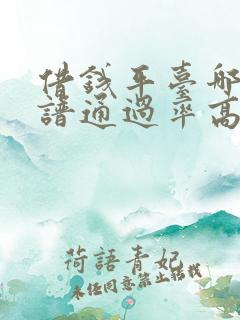 借錢平臺哪
譜通過率高
荷語青妃
未經同意禁止轉載